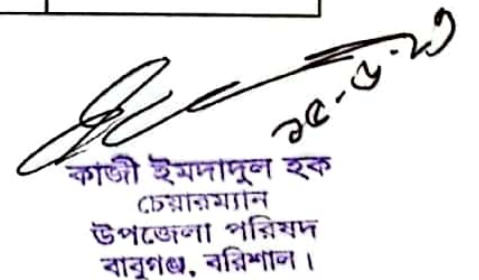 ১৫-৬-২৩
কাজী ইমদাদুল হক
চেয়ারম্যান
উপজেলা পরিষদ
বাবুগঞ্জ, বরিশাল।